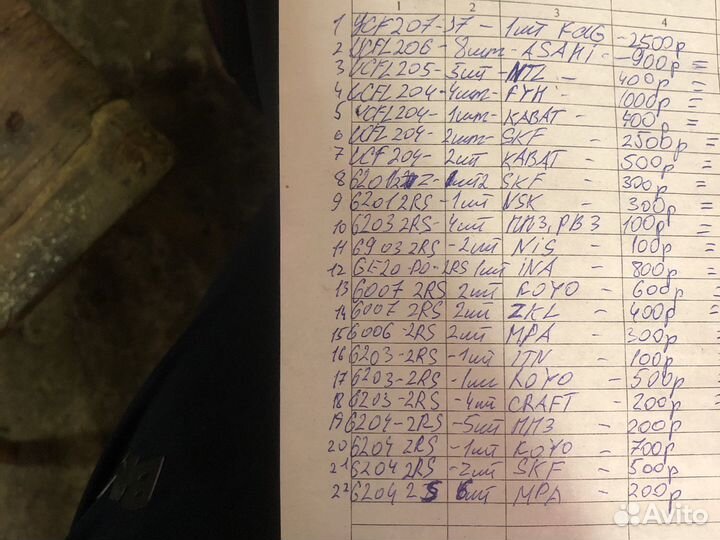 1 2 3 4
1 UCF207-37 - 1шт FAG - 2500р
2 UCFL206 - 8шт - ASAHI - 900р =
3 UCFL205 - 3шт - NTL - 400р =
4 UCFL204 - 4шт - FYH - 1000р =
5 UCFL204 - 1шт - КАВАТ - 400р =
6 UCFL204 - 2шт - SKF - 2500р =
7 UCF204 - 2шт КАВАТ - 500р
8 SKF - 300р
9 6201 2RS - 1шт NSK - 300р =
10 6203 2RS - 4шт ППЗ, РВЗ 100р =
11 6903 2RS - 2шт NIS - 100р
12 GE20-DO-2RS 1шт INA - 800р =
13 6007 2RS 2шт KOYO - 600р
14 6007 2RS 2шт ZKL - 400р =
15 6006-2RS 2шт MPA - 300р
16 6203-2RS - 1шт ITN - 100р
17 6203-2RS - 1шт KOYO - 500р
18 6203-2RS - 4шт CRAFT - 200р
19 6204-2RS - 5шт ППЗ - 200р
20 6204 2RS - 1шт KOYO - 700р
21 6204 2RS - 2шт SKF - 500р
22 6204 2S 6шт MPA - 200р
Avito